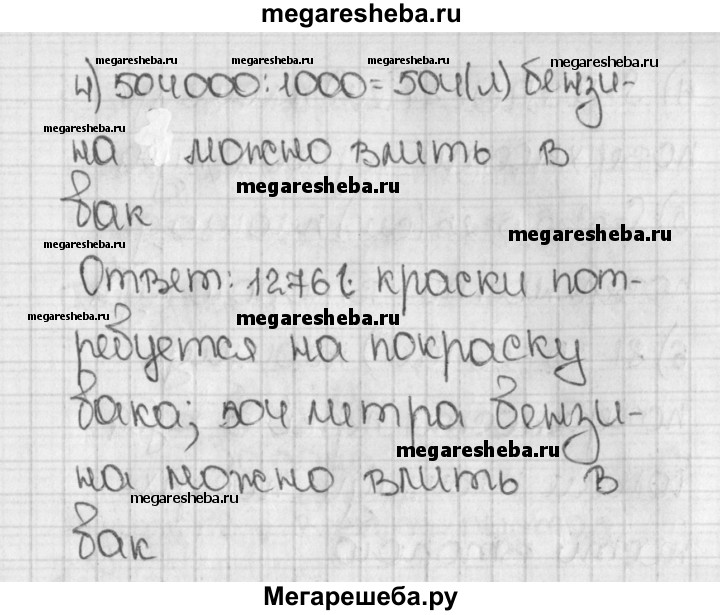 megaresheba.ru
megaresheba.ru megaresheba.ru megaresheba.ru megaresheba.ru
4) 504000:1000=504(л) бензи-
megaresheba.ru
на можно влить в
megaresheba.ru
бак
megaresheba.ru
megaresheba.ru
Ответ: 1276 г краски пот-
megaresheba.ru megaresheba.ru
ребуется на покраску
бака; 504 метра бензи-
megaresheba.ru
на можно влить в
megaresheba.ru
бак
Мегарешеба.ру